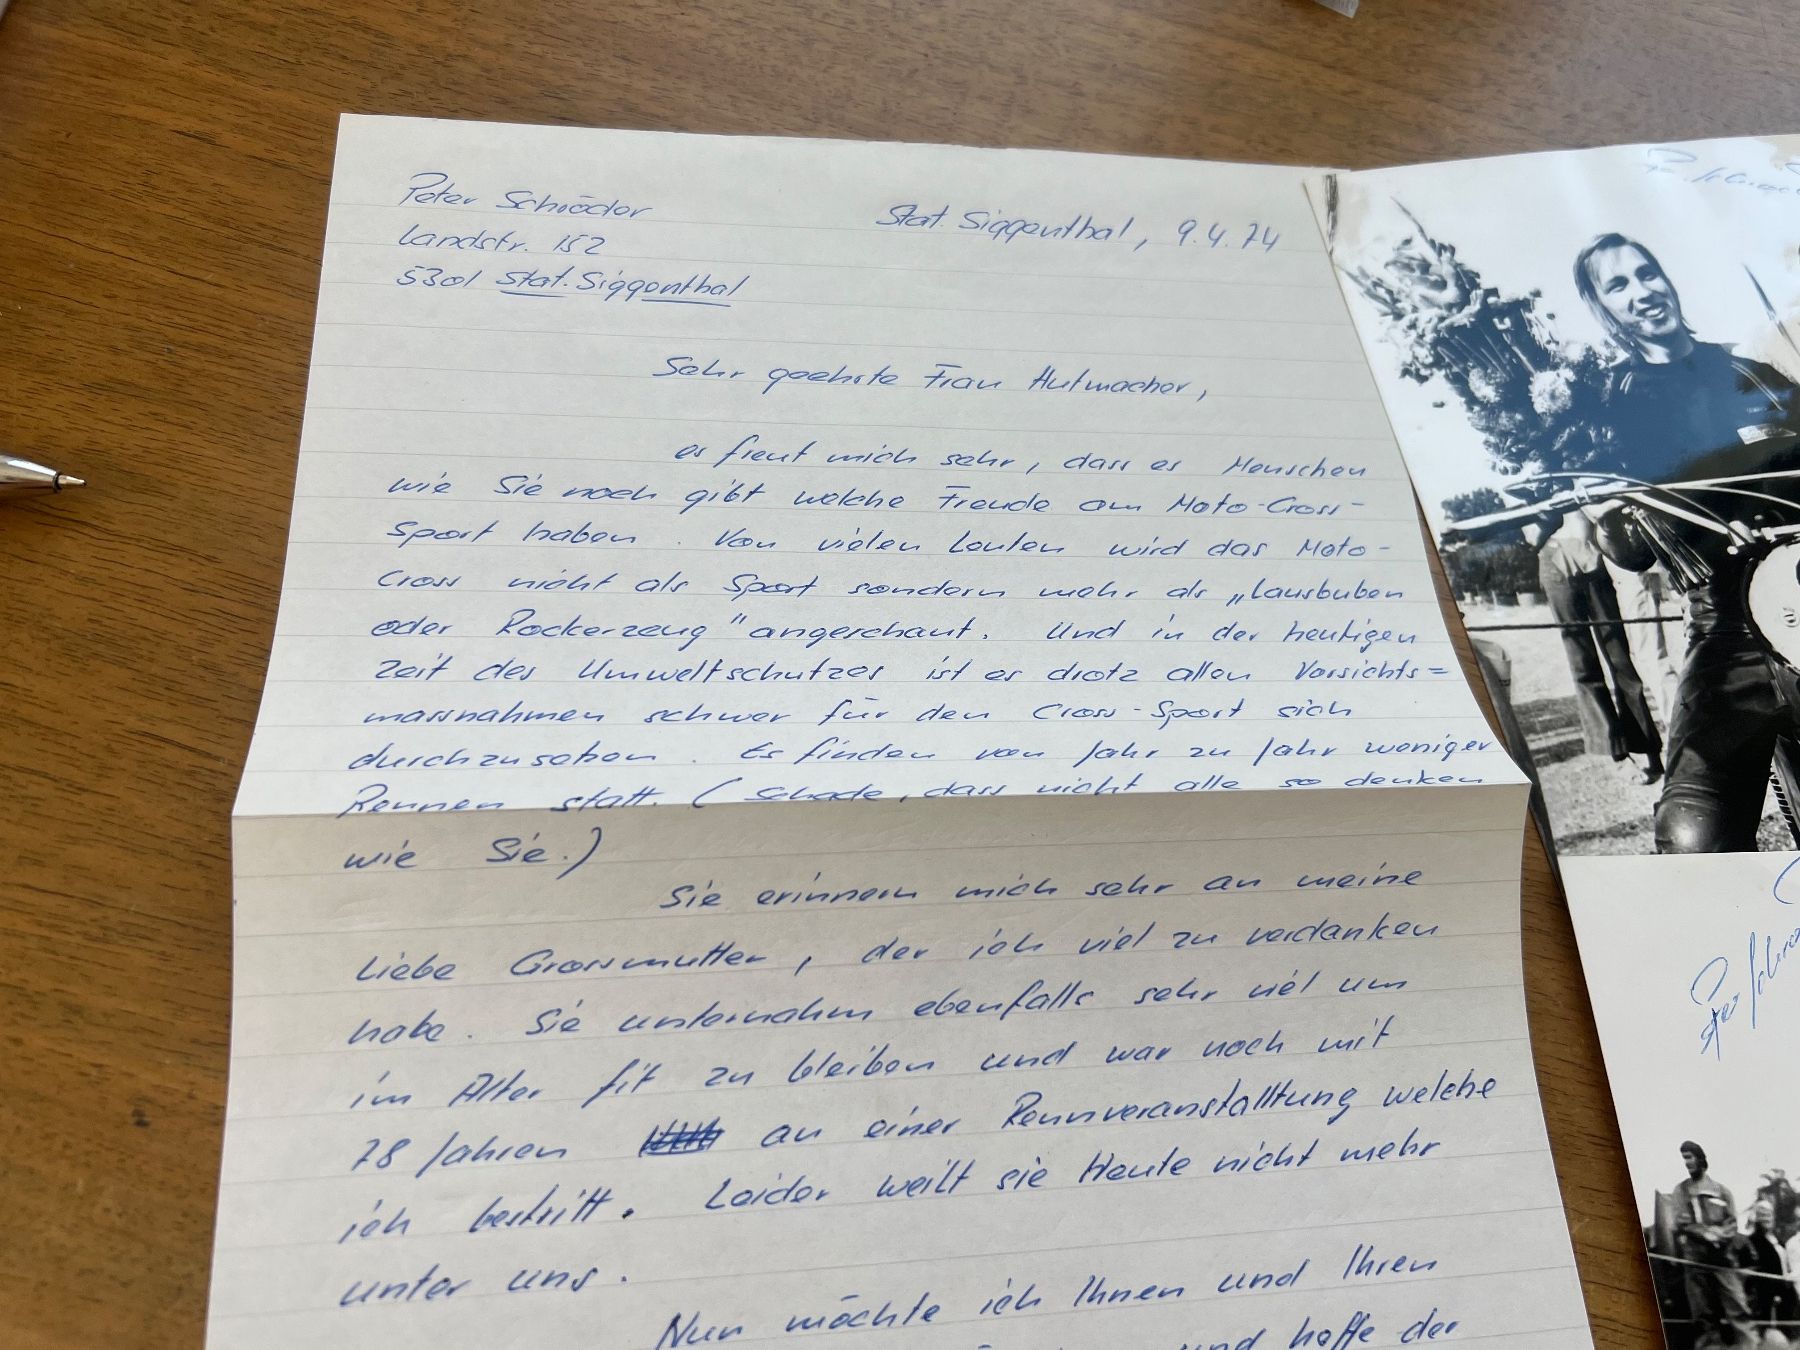 Peter Schröder
Landstr. 152
5301 Stat. Siggenthal
Stat. Siggenthal, 9.4.74
Sehr geehrte Frau Hutmacher,
es freut mich sehr, dass es Menschen
wie Sie noch gibt welche Freude am Moto-Cross-
Sport haben. Von vielen Leuten wird das Moto-
Cross nicht als Sport sondern mehr als „Lausbuben
oder Rockerzeug" angeschaut. Und in der heutigen
Zeit des Umweltschutzes ist es drotz allen Vorsichts=
massnahmen schwer für den Cross-Sport sich
durchzusetzen. Es finden von Jahr zu Jahr weniger
Rennen statt. (Schade, dass nicht alle so denken
wie Sie.)
Sie erinnern mich sehr an meine
liebe Grossmutter, der ich viel zu verdanken
habe. Sie unternahm ebenfalls sehr viel um
im Alter fit zu bleiben und war noch mit
78 Jahren an einer Rennveranstalltung welche
ich bestritt. Leider weilt sie Heute nicht mehr
unter uns.
Nun möchte ich Ihnen und Ihren
und hoffe der